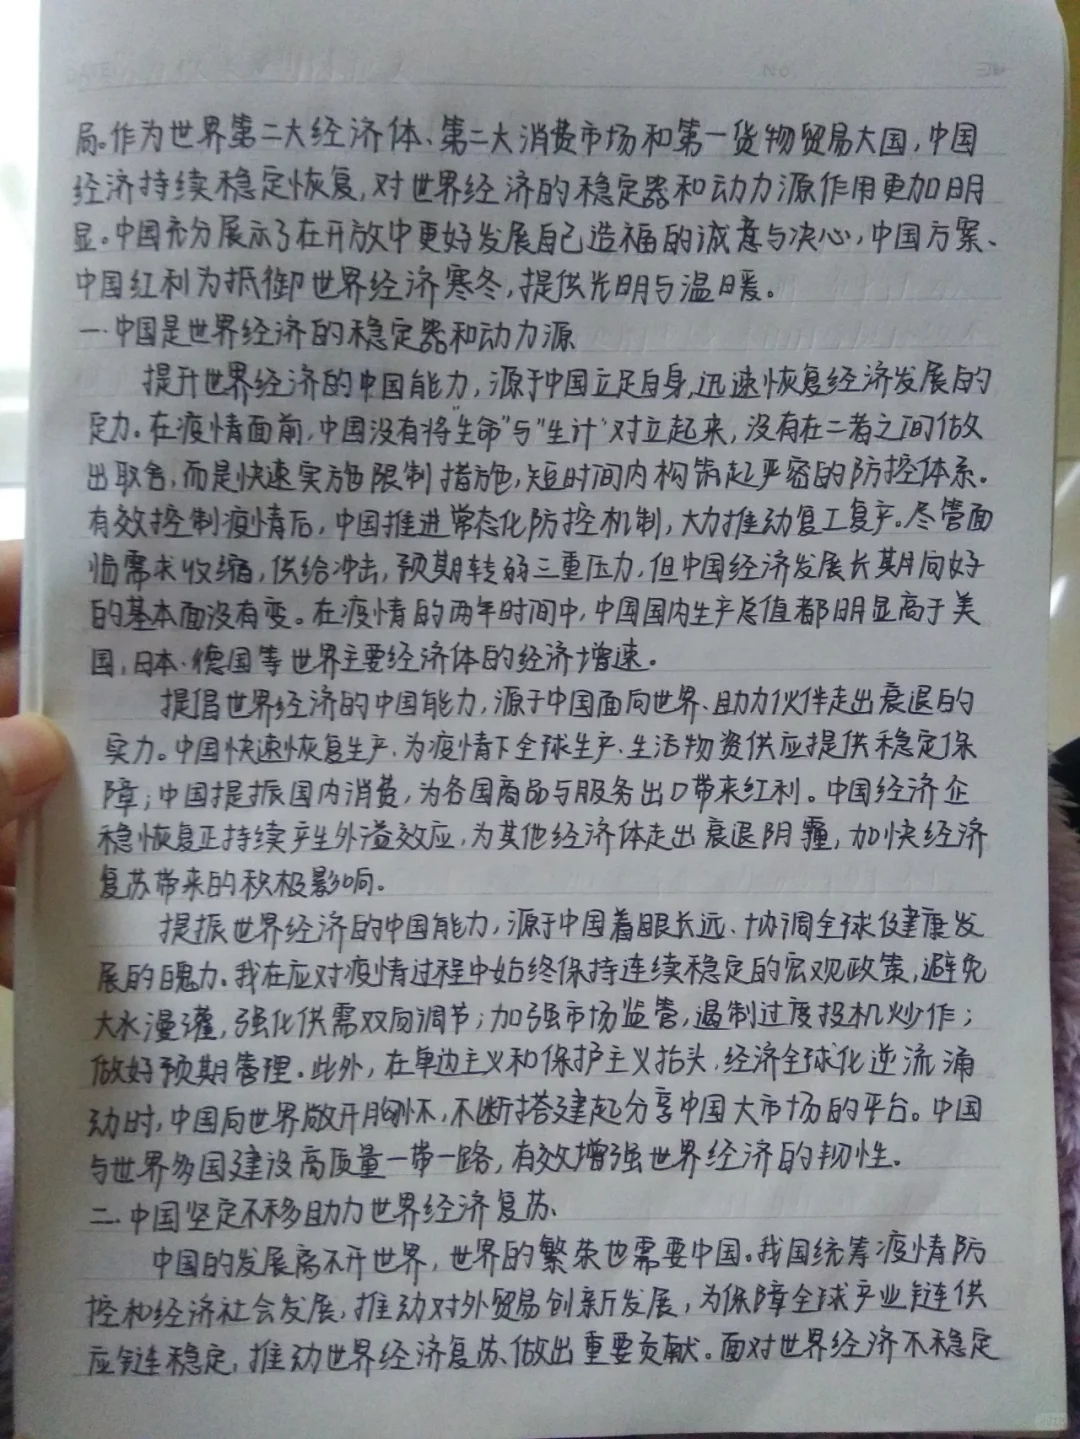 局。作为世界第二大经济体、第二大消费市场和第一货物贸易大国,中国
经济持续稳定恢复,对世界经济的稳定器和动力源作用更加明
显。中国充分展示了在开放中更好发展自己造福的诚意与决心,中国方案、
中国红利为抵御世界经济寒冬,提供光明与温暖。
一.中国是世界经济的稳定器和动力源
提升世界经济的中国能力,源于中国立足自身,迅速恢复经济发展的
定力。在疫情面前,中国没有将"生命"与"生计"对立起来,没有在二者之间做
出取舍,而是快速实施限制措施,短时间内构筑起严密的防控体系。
有效控制疫情后,中国推进常态化防控机制,大力推动复工复产。尽管面
临需求收缩,供给冲击,预期转弱三重压力,但中国经济发展长期向好
的基本面没有变。在疫情的两年时间中,中国国内生产总值都明显高于美
国,日本、德国等世界主要经济体的经济增速。
提倡世界经济的中国能力,源于中国面向世界、助力伙伴走出衰退的
实力。中国快速恢复生产、为疫情下全球生产、生活物资供应提供稳定保
障;中国提振国内消费,为各国商品与服务出口带来红利。中国经济企
稳恢复正持续产生外溢效应,为其他经济体走出衰退阴霾,加快经济
复苏带来的积极影响。
提振世界经济的中国能力,源于中国着眼长远、协调全球健康发
展的魄力。我在应对疫情过程中始终保持连续稳定的宏观政策,避免
大水漫灌,强化供需双向调节;加强市场监管,遏制过度投机炒作;
做好预期管理。此外,在单边主义和保护主义抬头,经济全球化逆流涌
动时,中国向世界敞开胸怀,不断搭建起分享中国大市场的平台。中国
与世界多国建设高质量一带一路,有效增强世界经济的韧性。
二.中国坚定不移助力世界经济复苏、
中国的发展离不开世界,世界的繁荣也需要中国。我国统筹疫情防
控和经济社会发展,推动对外贸易创新发展,为保障全球产业链供
应链稳定,推动世界经济复苏、做出重要贡献。面对世界经济不稳定